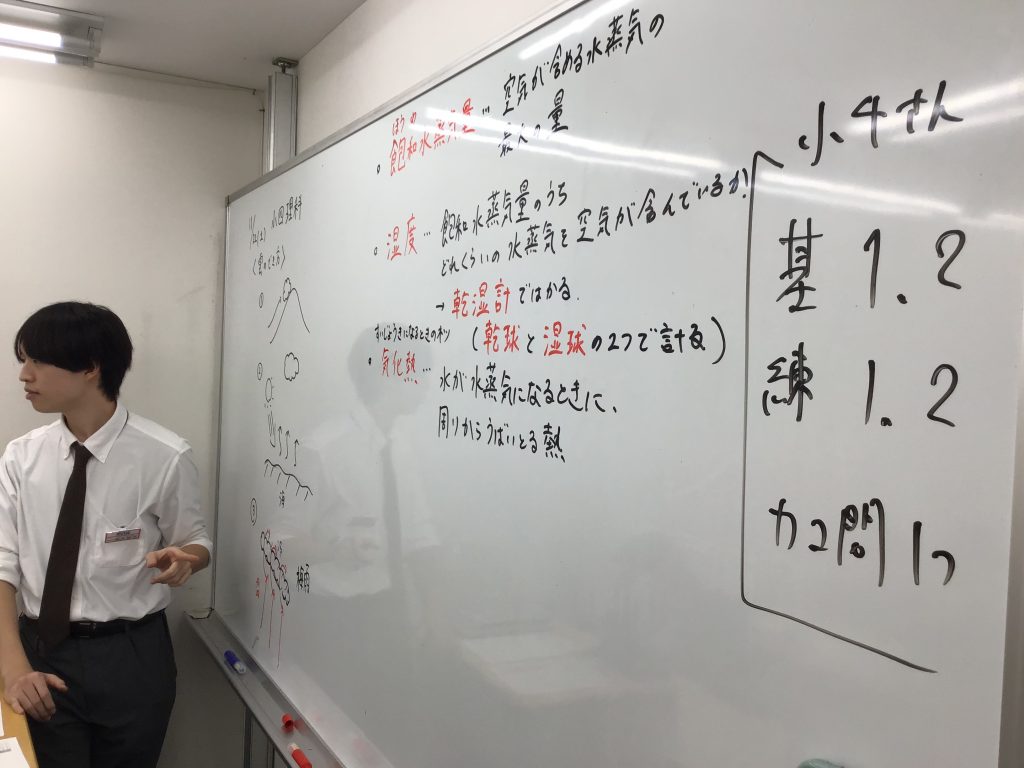 小4理科
①
②
海
③
梅雨
ほうわ
飽和水蒸気量… 空気が含める水蒸気の
最大の量
湿度… 飽和水蒸気量のうち
どれくらいの水蒸気を空気が含んでいるか?
→乾湿計ではかる.
(乾球と湿球の2つで計る)
気化熱… 水が水蒸気になるときに、
周りからうばいとる熱
小4さん
基 1. 2
練 1. 2
力2問